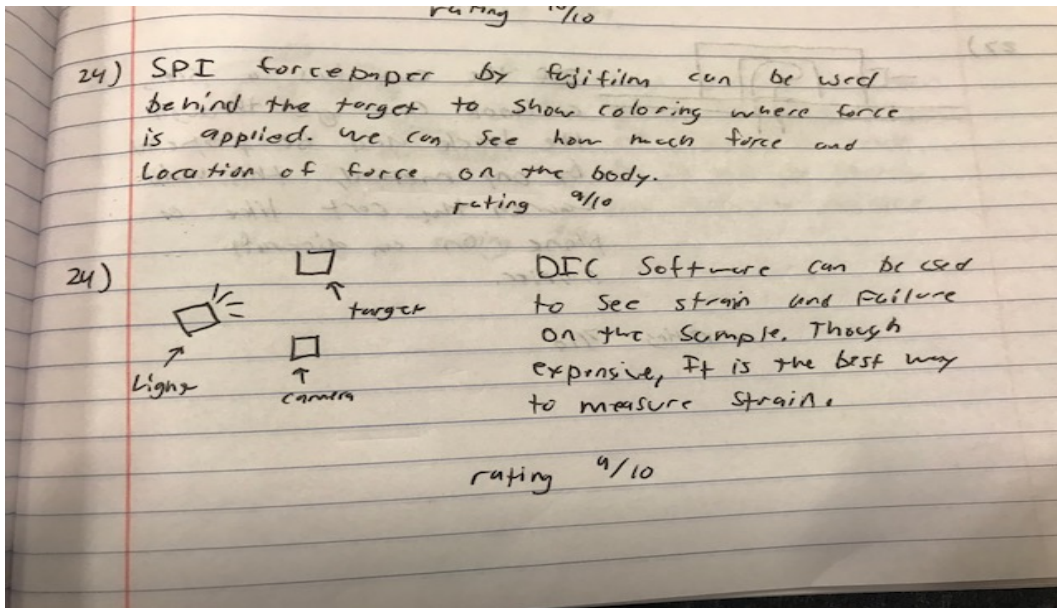 rating 10/10
24) SPI forcepaper by fujifilm can be used
behind the target to show coloring where force
is applied. we can see how much force and
Location of force on the body.
rating 9/10
24)
target
Light
camera
DIC Software can be used
to see strain and Failure
on the Sample. Though
expensive, It is the best way
to measure Strain.
rating 9/10